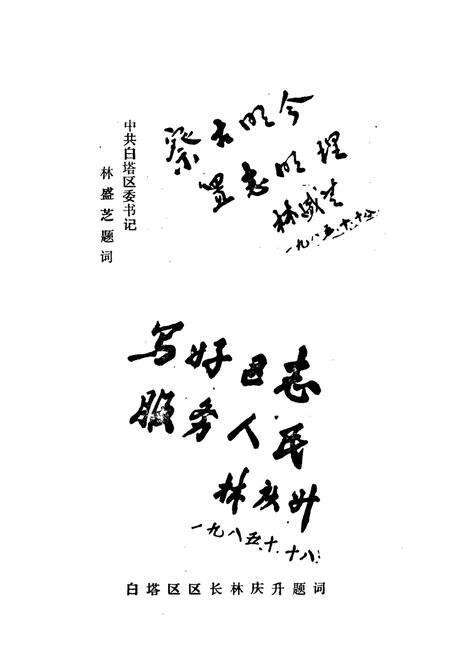 中共白塔区委书记
林盛芝题词
察古明今
置志明理
林盛芝
一九八五.十.十五
写好区志
服务人民
林庆升
一九八五.十.十八
白塔区区长林庆升题词